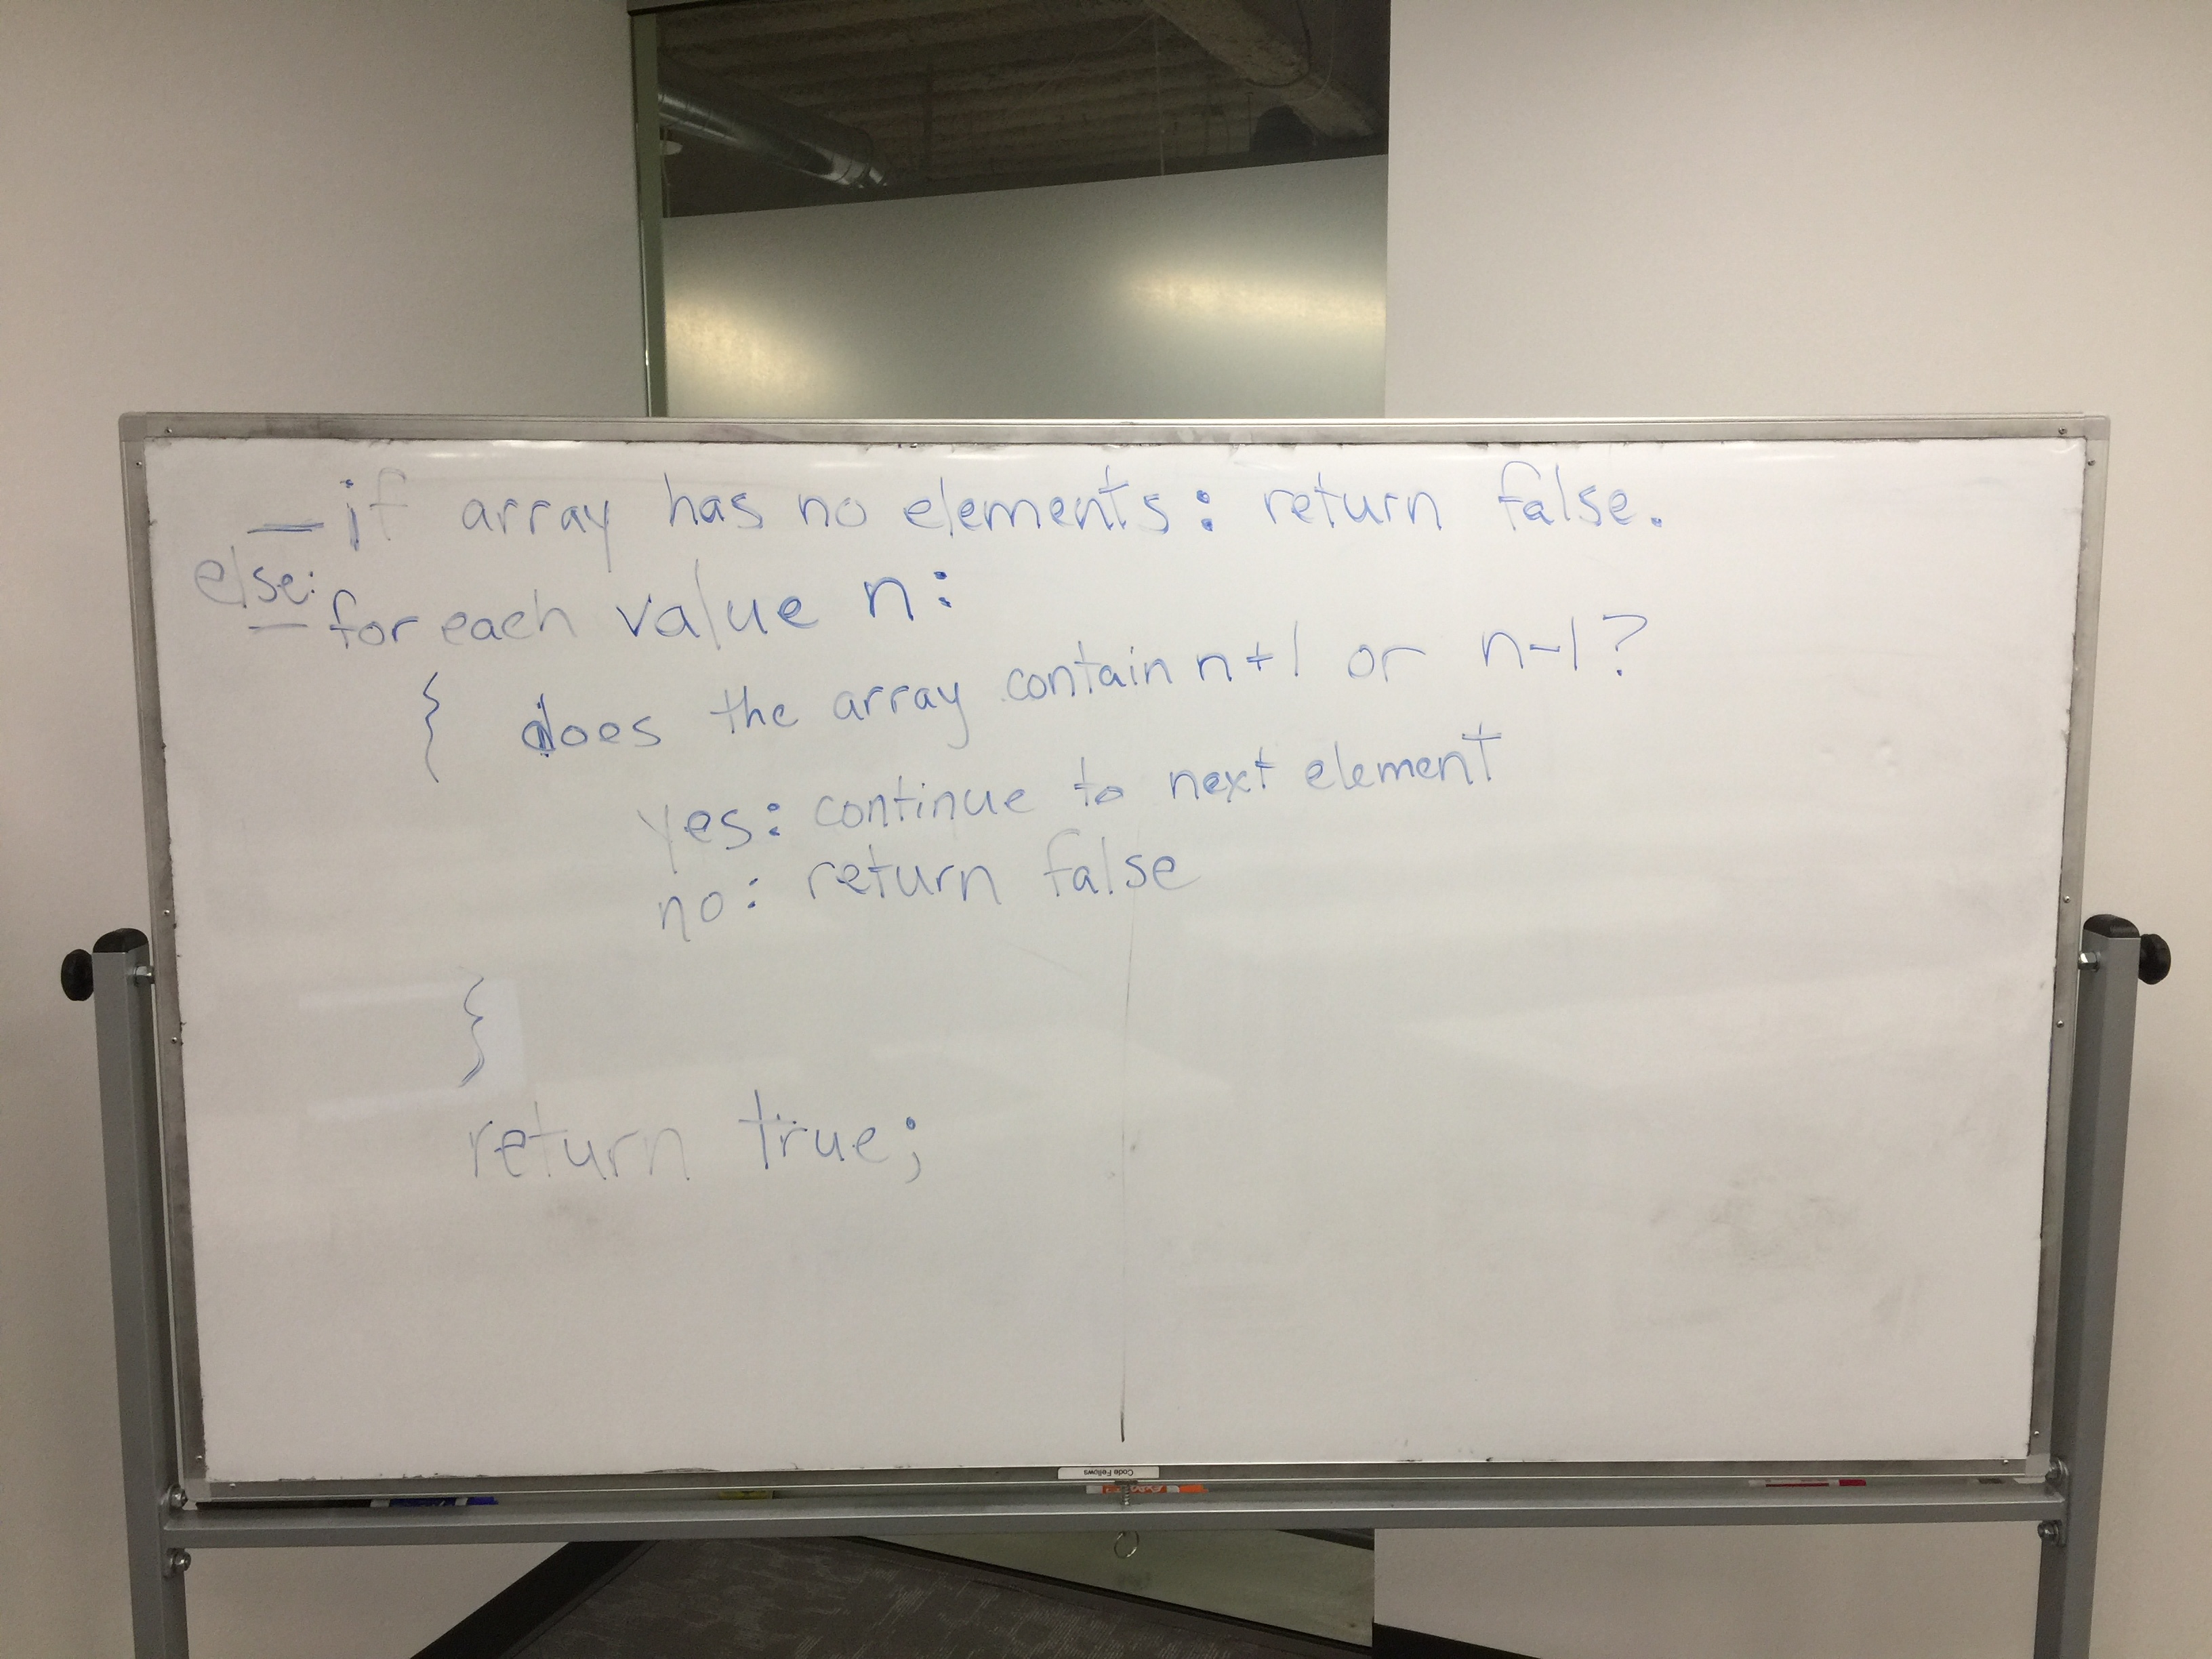 — if array has no elements: return false.
else:
— for each value n:
{ does the array contain n+1 or n-1?
yes: continue to next element
no: return false
}
return true;
Code Fellows